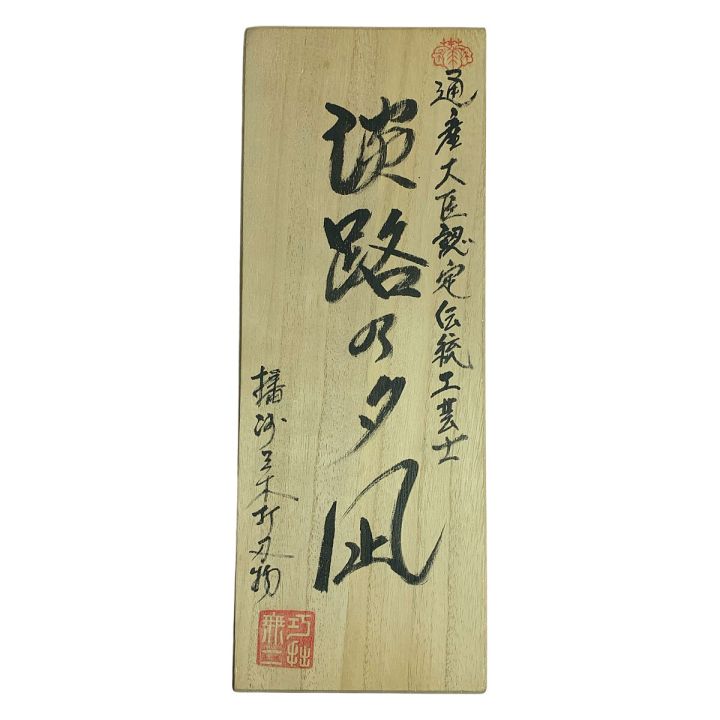 通産大臣認定伝統工芸士
淡路の夕凪
播州三木打刃物
巧拙
無二